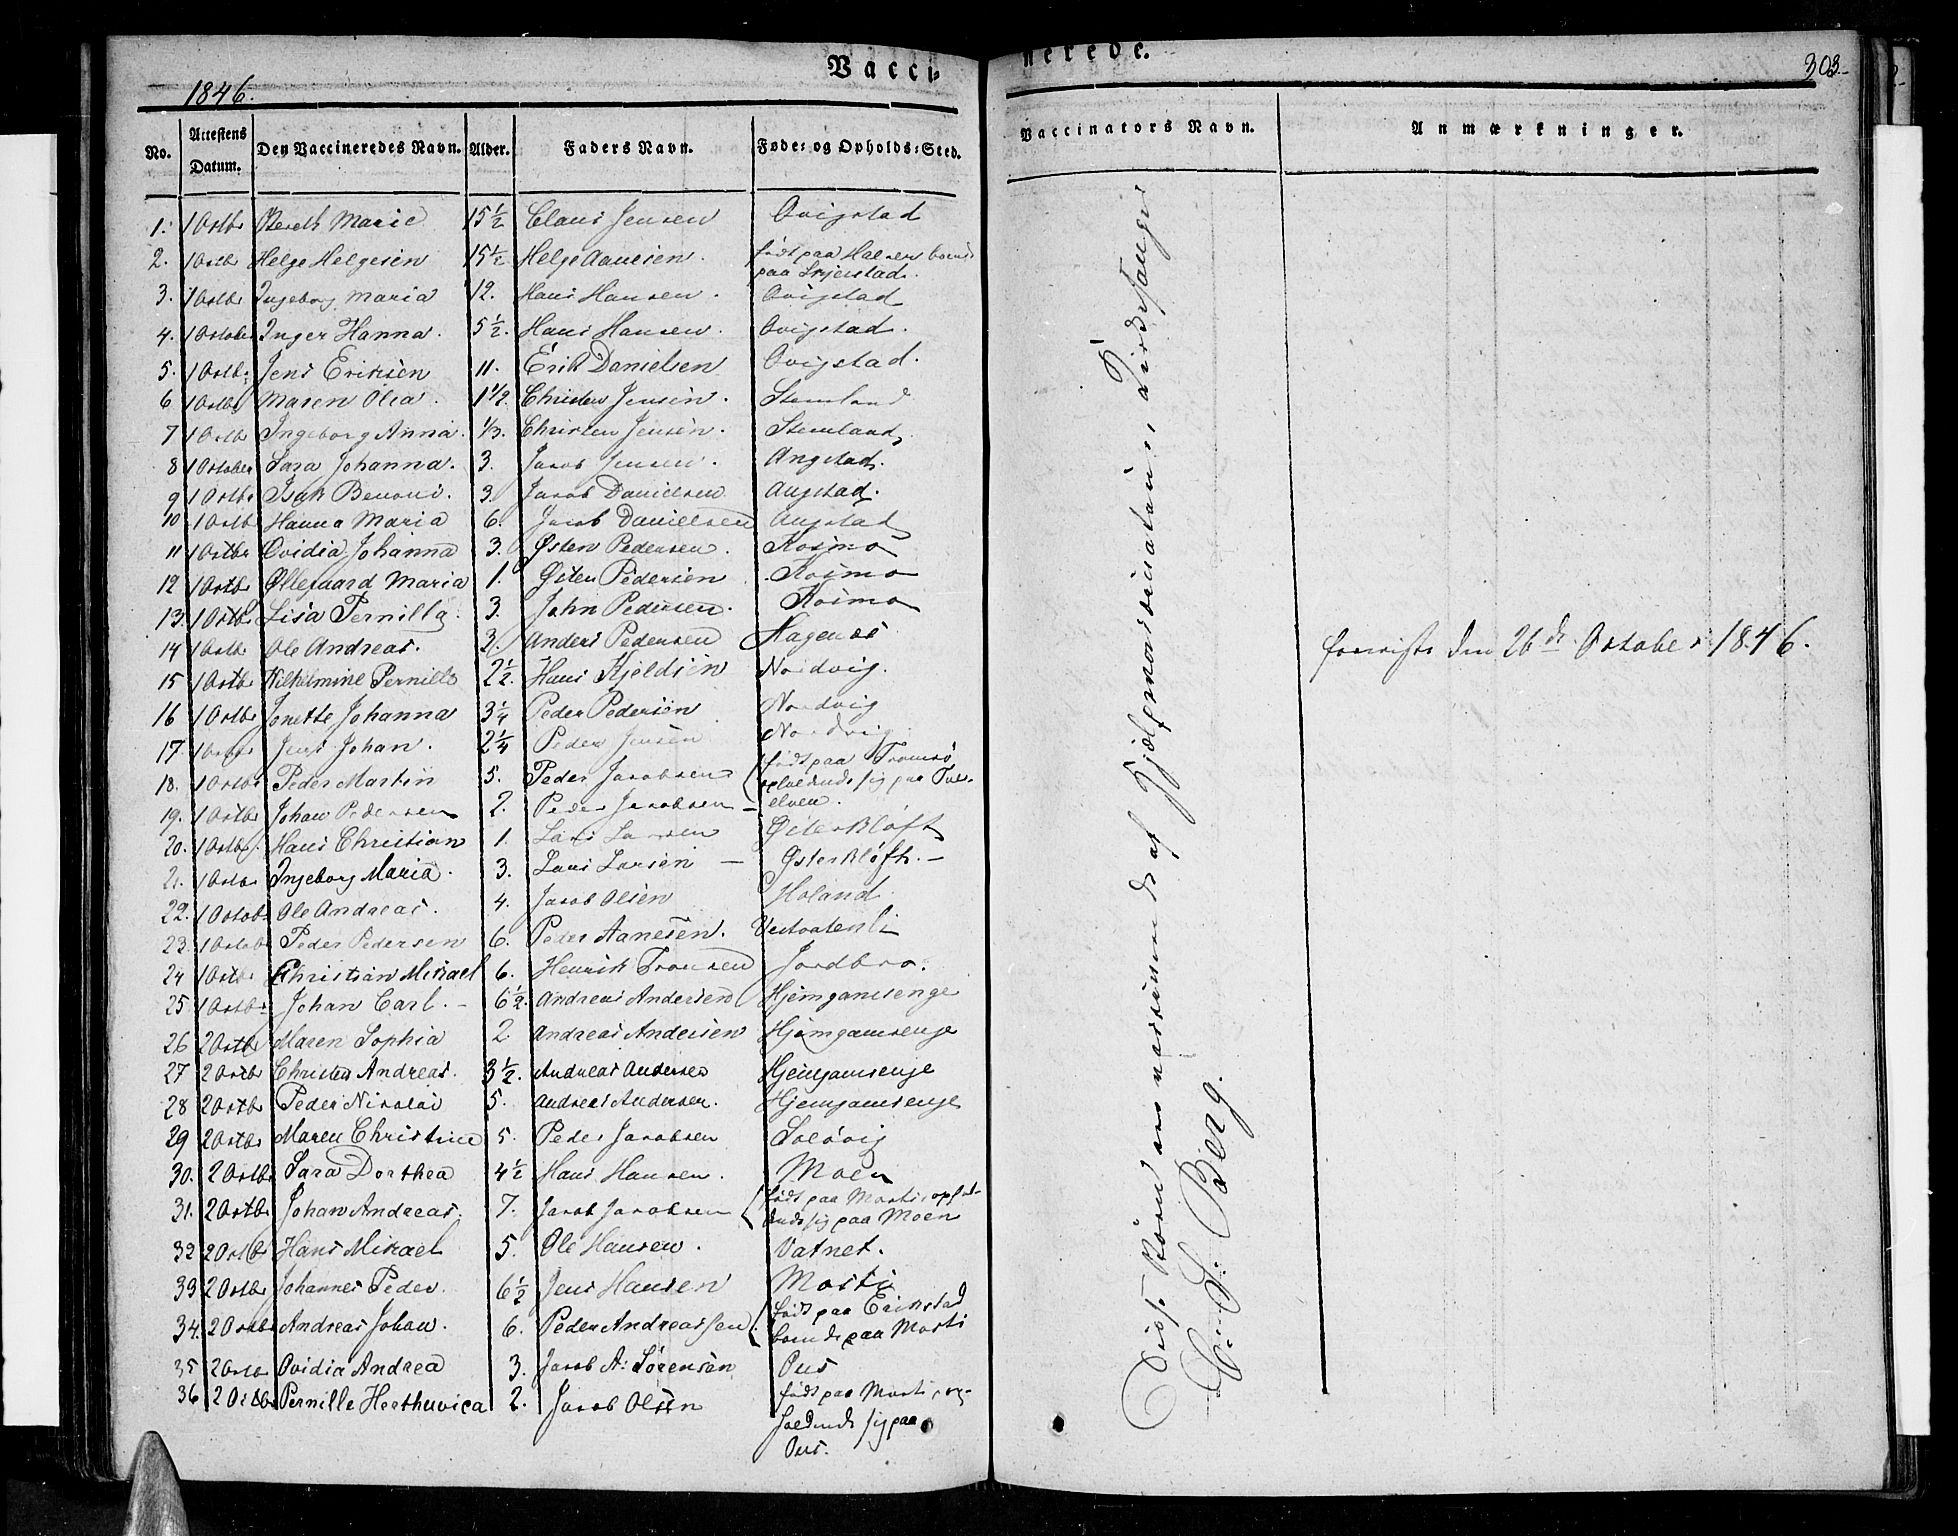 Vacci-
nerede.
303
1846.
No. Attestens Datum. Den Vaccineredes Navn. Alder. Faders Navn. Føde- og Opholds-Sted. Vaccinators Navn. Anmærkninger.
1. 1 Octbr Bereth Marie 15½ Claus Jensen Øvigstad
2. 1 Octbr Helge Helgesen 15½ Helge Aanesen. født paa
paa Skjerstad.
3. 1 Octbr Ingeborg Maria 12. Hans Hansen. Øvigstad
4. 1 October Inger Hanna. 5½. Hans Hansen. Øvigstad.
5. 1 Octbr Jens Eriksen 11. Erik Danielsen Øvigstad.
6 1 Octbr Maren Olea. 1½. Christen Jensen. Stemland
7 1 Octbr Ingeborg Anna. ⅓. Christen Jensen. Stemland
8 1 October Sara Johanna. 3. Jacob Jensen. Angstad.
9 1 Octbr Isak Benoni. 3. Jacob Danielsen Angstad.
10. 1 Octbr Hanna Maria 6. Jacob Danielsen Angstad
11 1 Octbr Ovidia Johanna 3. Østen Pedersen. Kosmo
12 1 Octbr Øllegaard Maria 1. Østen Pedersen. Kosmo
13. 1 Octbr Lisa Pernilla. 3. John Pedersen. Kosmo
14 1 Octb Ole Andreas. 2. Anders Pedersen Hagenes
15 1 Octbr Wilhelmine Pernille 2½. Hans Kjeldsen Nordvig.
16 1 Octbr Jonette Johanna 3¼ Peder Pedersen Nordvig
17. 1 Octbr Jens Johan. 2¼ Peder Jensen Nordvig
18. 1 Octbr Peder Martin 5. Peder Jacobsen født paa Tromsø
sig paa
elven.
19. 1 Octbr Johan Pedersen 2. Peder Jacobsen –
20. 1 Octbr. Hans Christian 1. Lars Larsen Østerkløft
21. 1 Octbr Ingeborg Maria. 3. Lars Larsen – Østerkløft. –
22. 1 Octob. Ole Andreas. 4. Jacob Olsen Holand.
23. 1 Octob Peder Pedersen 6. Peder Aanesen. Vestvatenli
24 1 Octbr Christian Mikael 6. Henrik Tronsen Jordbro.
25 1 Octbr Johan Carl. – 6½. Andreas Andersen Hjemgamsenge
26 2 Octbr Maren Sophia 2 Andreas Andersen Hjemgamsenge
27 2 Octbr Christen Andreas. 3½. Andreas Andersen Hjemgamsenge
28 2 Octbr Peder Nicolai 5. Andreas Andersen. Hjemgamsenge
29 2 Octbr Maren Christine 5. Peder Jacobsen Solövig
30. 2 Octbr Sara Dorthea 4½ Hans Hansen. Moen
31. 2 Octbr Johan Andreas. 7. Jacob Jacobsen født paa Morti
sig paa Moen
32 2 Octbr Hans Mikael 5. Ole Hansen. Vatnet.
33 2 Octbr Johannes Peder. 6½ Jens Hansen Morti
34. 2 Octbr Andreas Johan. 6. Peder Andreassen født paa Erikstad
boende paa Morti
35 2 Octbr Ovidia Andrea 3. Jacob A: Sørensen
36 2 Octbr Pernille Herthuvica 2. Jacob Olsen født paa Morti, op-
holdende sig paa
Disse Børn ere vaccinerede af Hjælpevaccinateur, Kirkesanger
L. S. Berg.
foreviist den 26de October 1846.